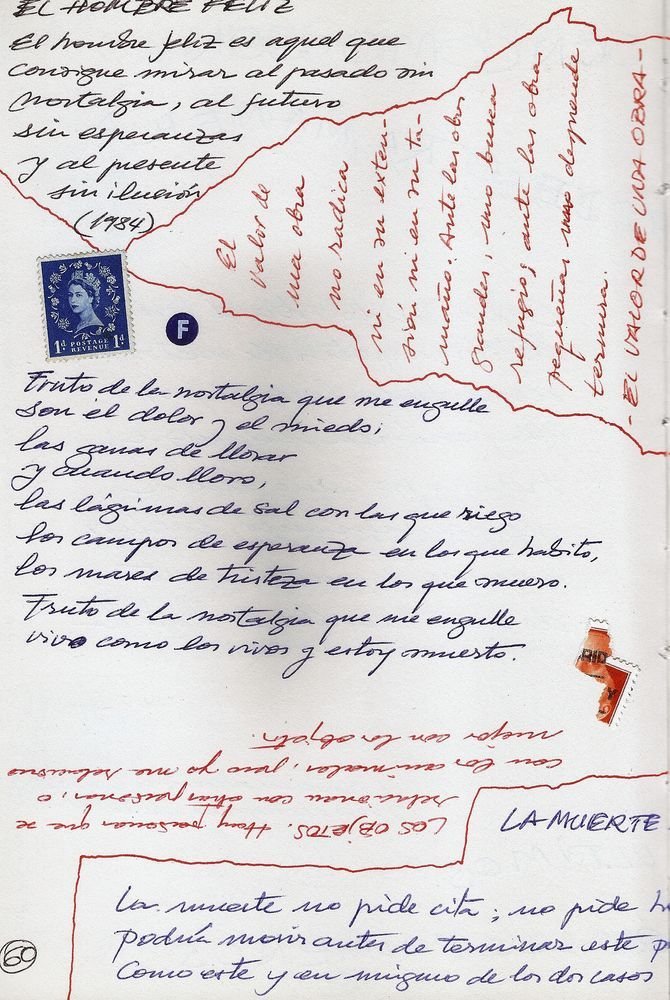 EL HOMBRE FELIZ
El hombre feliz es aquel que
consigue mirar al pasado sin
nostalgia, al futuro
sin esperanzas
y al presente
sin ilusión
(1984)
El
valor de
una obra
no radica
ni en su exten-
sión ni en su ta-
maño. Ante las obras
grandes, uno busca
refugio; ante las obras
pequeñas uno desprende
ternura.
- EL VALOR DE UNA OBRA -
1d POSTAGE REVENUE 1d
F
Fruto de la nostalgia que me engulle
son el dolor y el miedo;
las ganas de llorar
y cuando lloro,
las lágrimas de sal con las que riego
los campos de esperanza en los que habito,
los mares de tristeza en los que muero.
Fruto de la nostalgia que me engulle
vivo como los vivos y estoy muerto.
RID
LOS OBJETOS. Hay personas que se
relacionan con otras personas, o
con los animales, pero yo me relaciono
mejor con los objetos.
LA MUERTE
La muerte no pide cita; no pide
podría morir antes de terminar este
Como este y en ninguno de los dos casos
60